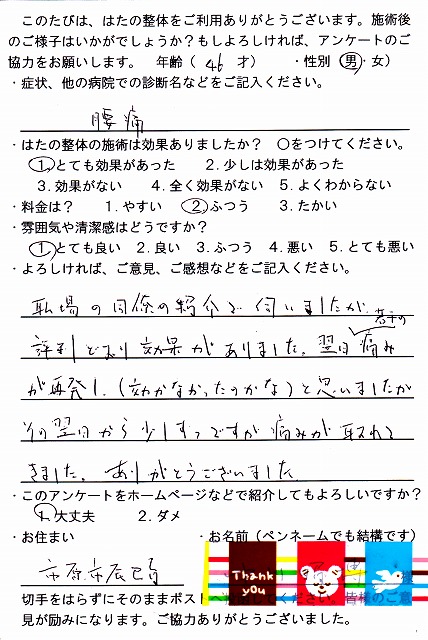 このたびは、はたの整体をご利用ありがとうございます。施術後
のご様子はいかがでしょうか？もしよろしければ、アンケートのご
協力をお願いします。 年齢（ 46 才） ・性別（男・女）
・症状、他の病院での診断名などをご記入ください。
腰痛
・はたの整体の施術は効果ありましたか？ ○をつけてください。
1.とても効果があった 2.少しは効果があった
3.効果がない 4.全く効果がない 5.よくわからない
・料金は？ 1.やすい 2.ふつう 3.たかい
・雰囲気や清潔感はどうですか？
1.とても良い 2.良い 3.ふつう 4.悪い 5.とても悪い
・よろしければ、ご意見、ご感想などをご記入ください。
職場の同僚の紹介で伺いましたが、
評判どおり効果がありました。翌日若干の痛み
が再発し、（効かなかったのかな）と思いましたが
その翌日から少しずつですが痛みが取れて
きました。ありがとうございました
・このアンケートをホームページなどで紹介してもよろしいですか？
1.大丈夫 2.ダメ
・お住まい ・お名前（ペンネームでも結構です）
市原市辰巳台 様
Thank you
切手をはらずにそのままポストへ してください。皆様のご意
見が励みになります。ご協力ありがとうございました。